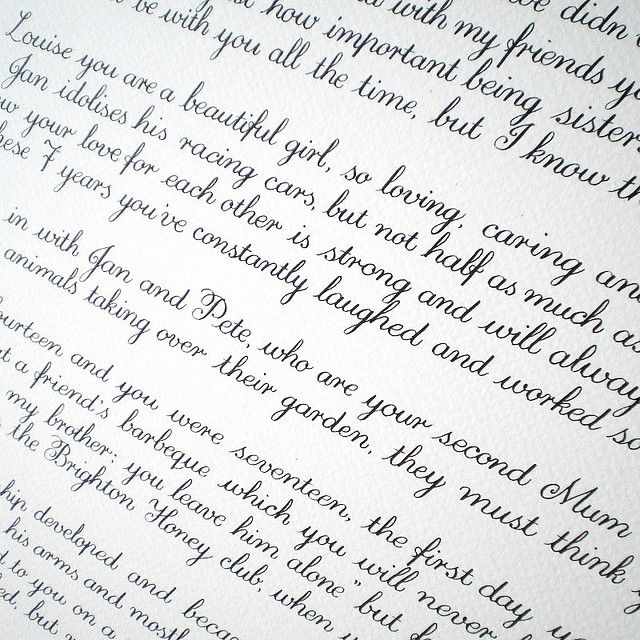 didn
with my friends yo
how important being sister
be with you all the time, but I know th
Louise you are a beautiful girl, so loving, caring an
Jan idolises his racing cars, but not half as much as
w your love for each other is strong and will alway
hese 7 years you've constantly laughed and worked so
in with Jan and Pete, who are your second Mum
animals taking over their garden, they must think y
urteen and you were seventeen, the first day
t a friend's barbeque which you will never
my brother; you leave him alone" but
the Brighton Honey club, when
hip developed and beca
his arms and mostl
to you on a
ed, but